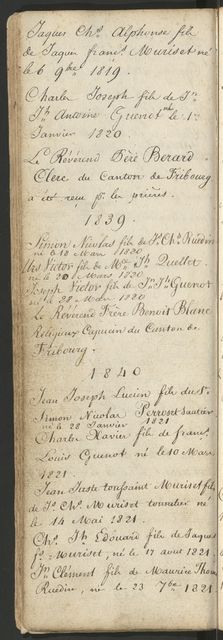 Jaques Chs Alphonse fils
de Jaques franç. Muriset né
le 6 9bre 1819.
Charle Joseph fils de Jn
Jh Antoine Guenot né le 1r
Janvier 1820.
Le Révérend Béré Berard
Clerc du Canton de Fribourg
a été reçu p. les prières.
1839.
Simon Nicolas fils de Js Chs Ruedin
né le 18 Mars 1820
Urs Victor fils de Mce Jh Quellet
né le 20 Mars 1820
Joseph Victor fils de Jn Jh Guenot
né le 28 Mars 1820
Le Révérend Frère Benoit Blanc
Religieux Capucin du Canton de
Fribourg.
1840
Jean Joseph Lucien fils du St
Simon Nicolas Perroset Sautier
né le 28 Janvier 1821
Charle Xavier fils de franç.
Louis Guenot né le 10 Mars
1821.
Jean Juste toussaint Muriset fils
de Js Chs Muriset tonnelier né
le 14 Mai 1821.
Chs Jh Edouard fils de Jaques
fs Muriset, né le 17 aout 1821.
Jn Clément fils de Maurice Thom.
Ruedin, né le 23 7bre 1821